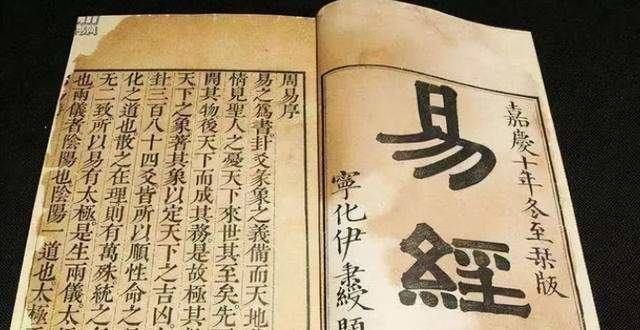 嘉慶十年冬至栞版
易經
寧化伊秉綬題
周易序
易之爲書卦爻彖象之義備而天地
情見聖人之憂天下來世其至矣先
開其物後天下而成其務是故極其
天下之象著其象以定天下之吉凶
卦三百八十四爻皆所以順性命之
化之道也散之在理則有萬殊統之
无二致所以易有太極是生兩儀太
也兩儀者陰陽也陰陽一道也太極